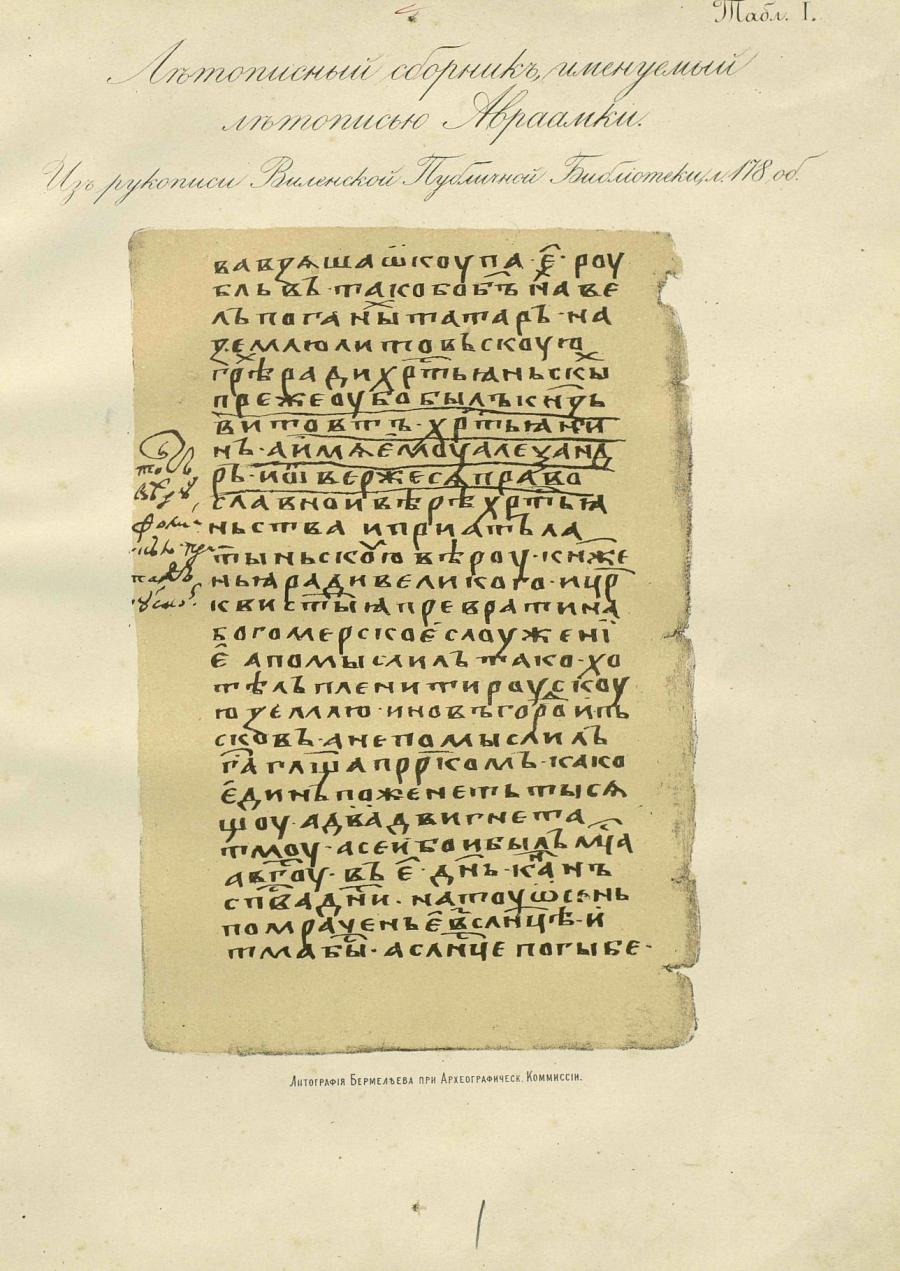 Табл. I.
Лѣтописный сборникъ, именуемый
лѣтописью Авраамки.
Изъ рукописи Виленской Публичной Библіотеки, л. 178 об.
вавꙁѧшаѿкоупа · е҃ · роу
бльвъ · такобобѣ наве
лъпоганы татаръ · на
ꙁемлюлитовьскоую
грѣ радихртьꙗньскы
прежеоубобылъкнꙁь
витовтъ · хртьꙗни
нъ · аимѧемоуалеѯанд
ръ · иѿвержесѧправо
славноивѣрѣхртьꙗ
ньства иприатъла
тыньскоую вѣроу · кнѧже
ньꙗрадивеликого · ицр
квистыꙗпревратина
богомерскоеслоужені
е апомыслилъ тако · хо
тѣлъпленитироускоу
юꙁемлю · иновъгородипь
сковъ · анепомыслилъ
га глша пррком · како
единъпоженетьтысѧ
щоу · адвадвигнета
тмоу · асеибоибылъмца
авгоу · въ е҃ · днь · канъ
спва дни · натоуѿсень
помраченьевслнцѣ · и
тмабы · аслнцепогыбе ·
Литографія Бермелѣева при Археографическ. Коммиссіи.